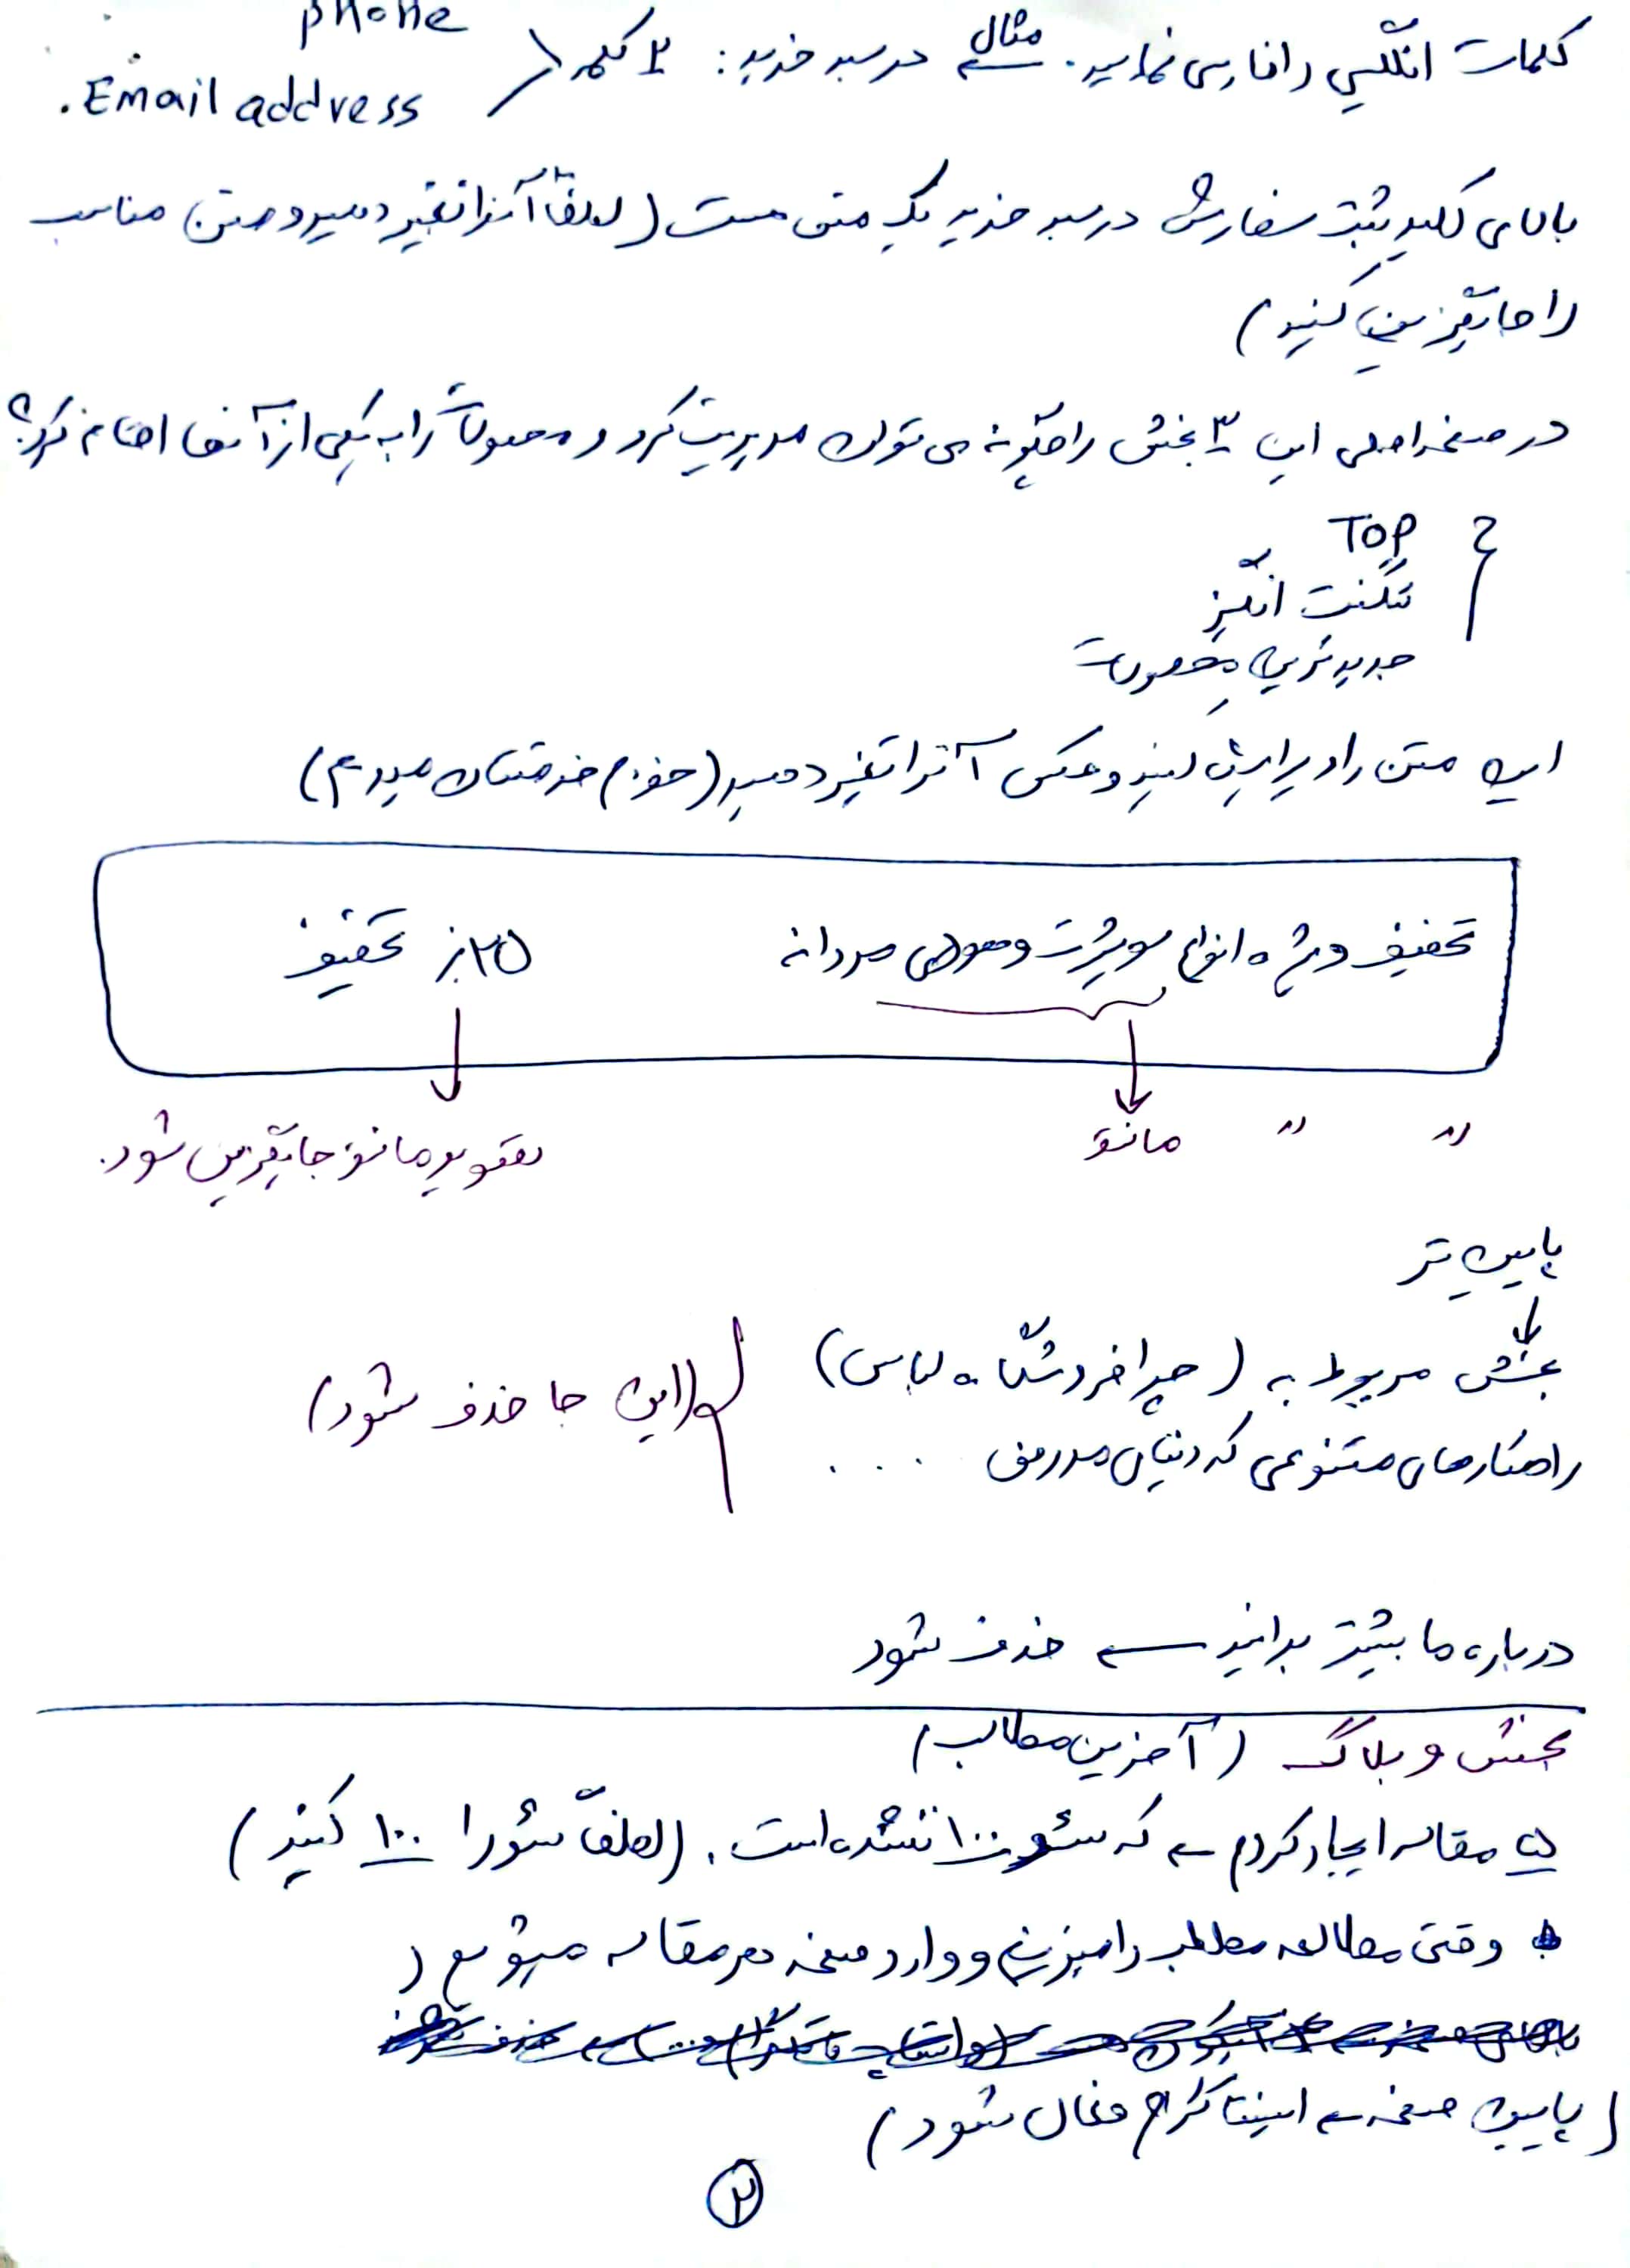 کلمات انگلیسی را فارسی نمایید. مثال در سبد خرید: ۲ کلمه
phone
Email address.
بالای کلید ثبت سفارش در سبد خرید یک متنی هست (لطفاً آنرا تغییر دهید و متن مناسب
را جایگزین کنید)
در صفحه اصلی این ۳ بخش را چگونه می توان مدیریت کرد و محصولات را به یکی از آنها اضافه کرد؟
TOP
شگفت انگیز
جدیدترین محصولات
این متن را ویرایش کنید و عکس آنرا تغییر دهید (خودم خدمتتان میدم)
تخفیف ویژه انواع سویشرت و هودی مردانه ۲۵٪ تخفیف
" " مانتو
تصویر مانتو جایگزین شود.
پایین تر
بخش مربوط به (چرا فروشگاه لباس)
راهکارهای متنوعی که دنیای مدرن ....
(این جا حذف شود)
درباره ما بیشتر بدانید حذف شود
بخش وبلاگ (آخرین مطالب)
۵ مقاله ایجاد کردم که سئو ۱۰۰ نشده است. (لطفاً سئو را ۱۰۰ کنید)
وقتی مطالعه مطلب را میزنیم و وارد صفحه هر مقاله میشویم (
(پایین صفحه اینستاگرام فعال شود)
۲